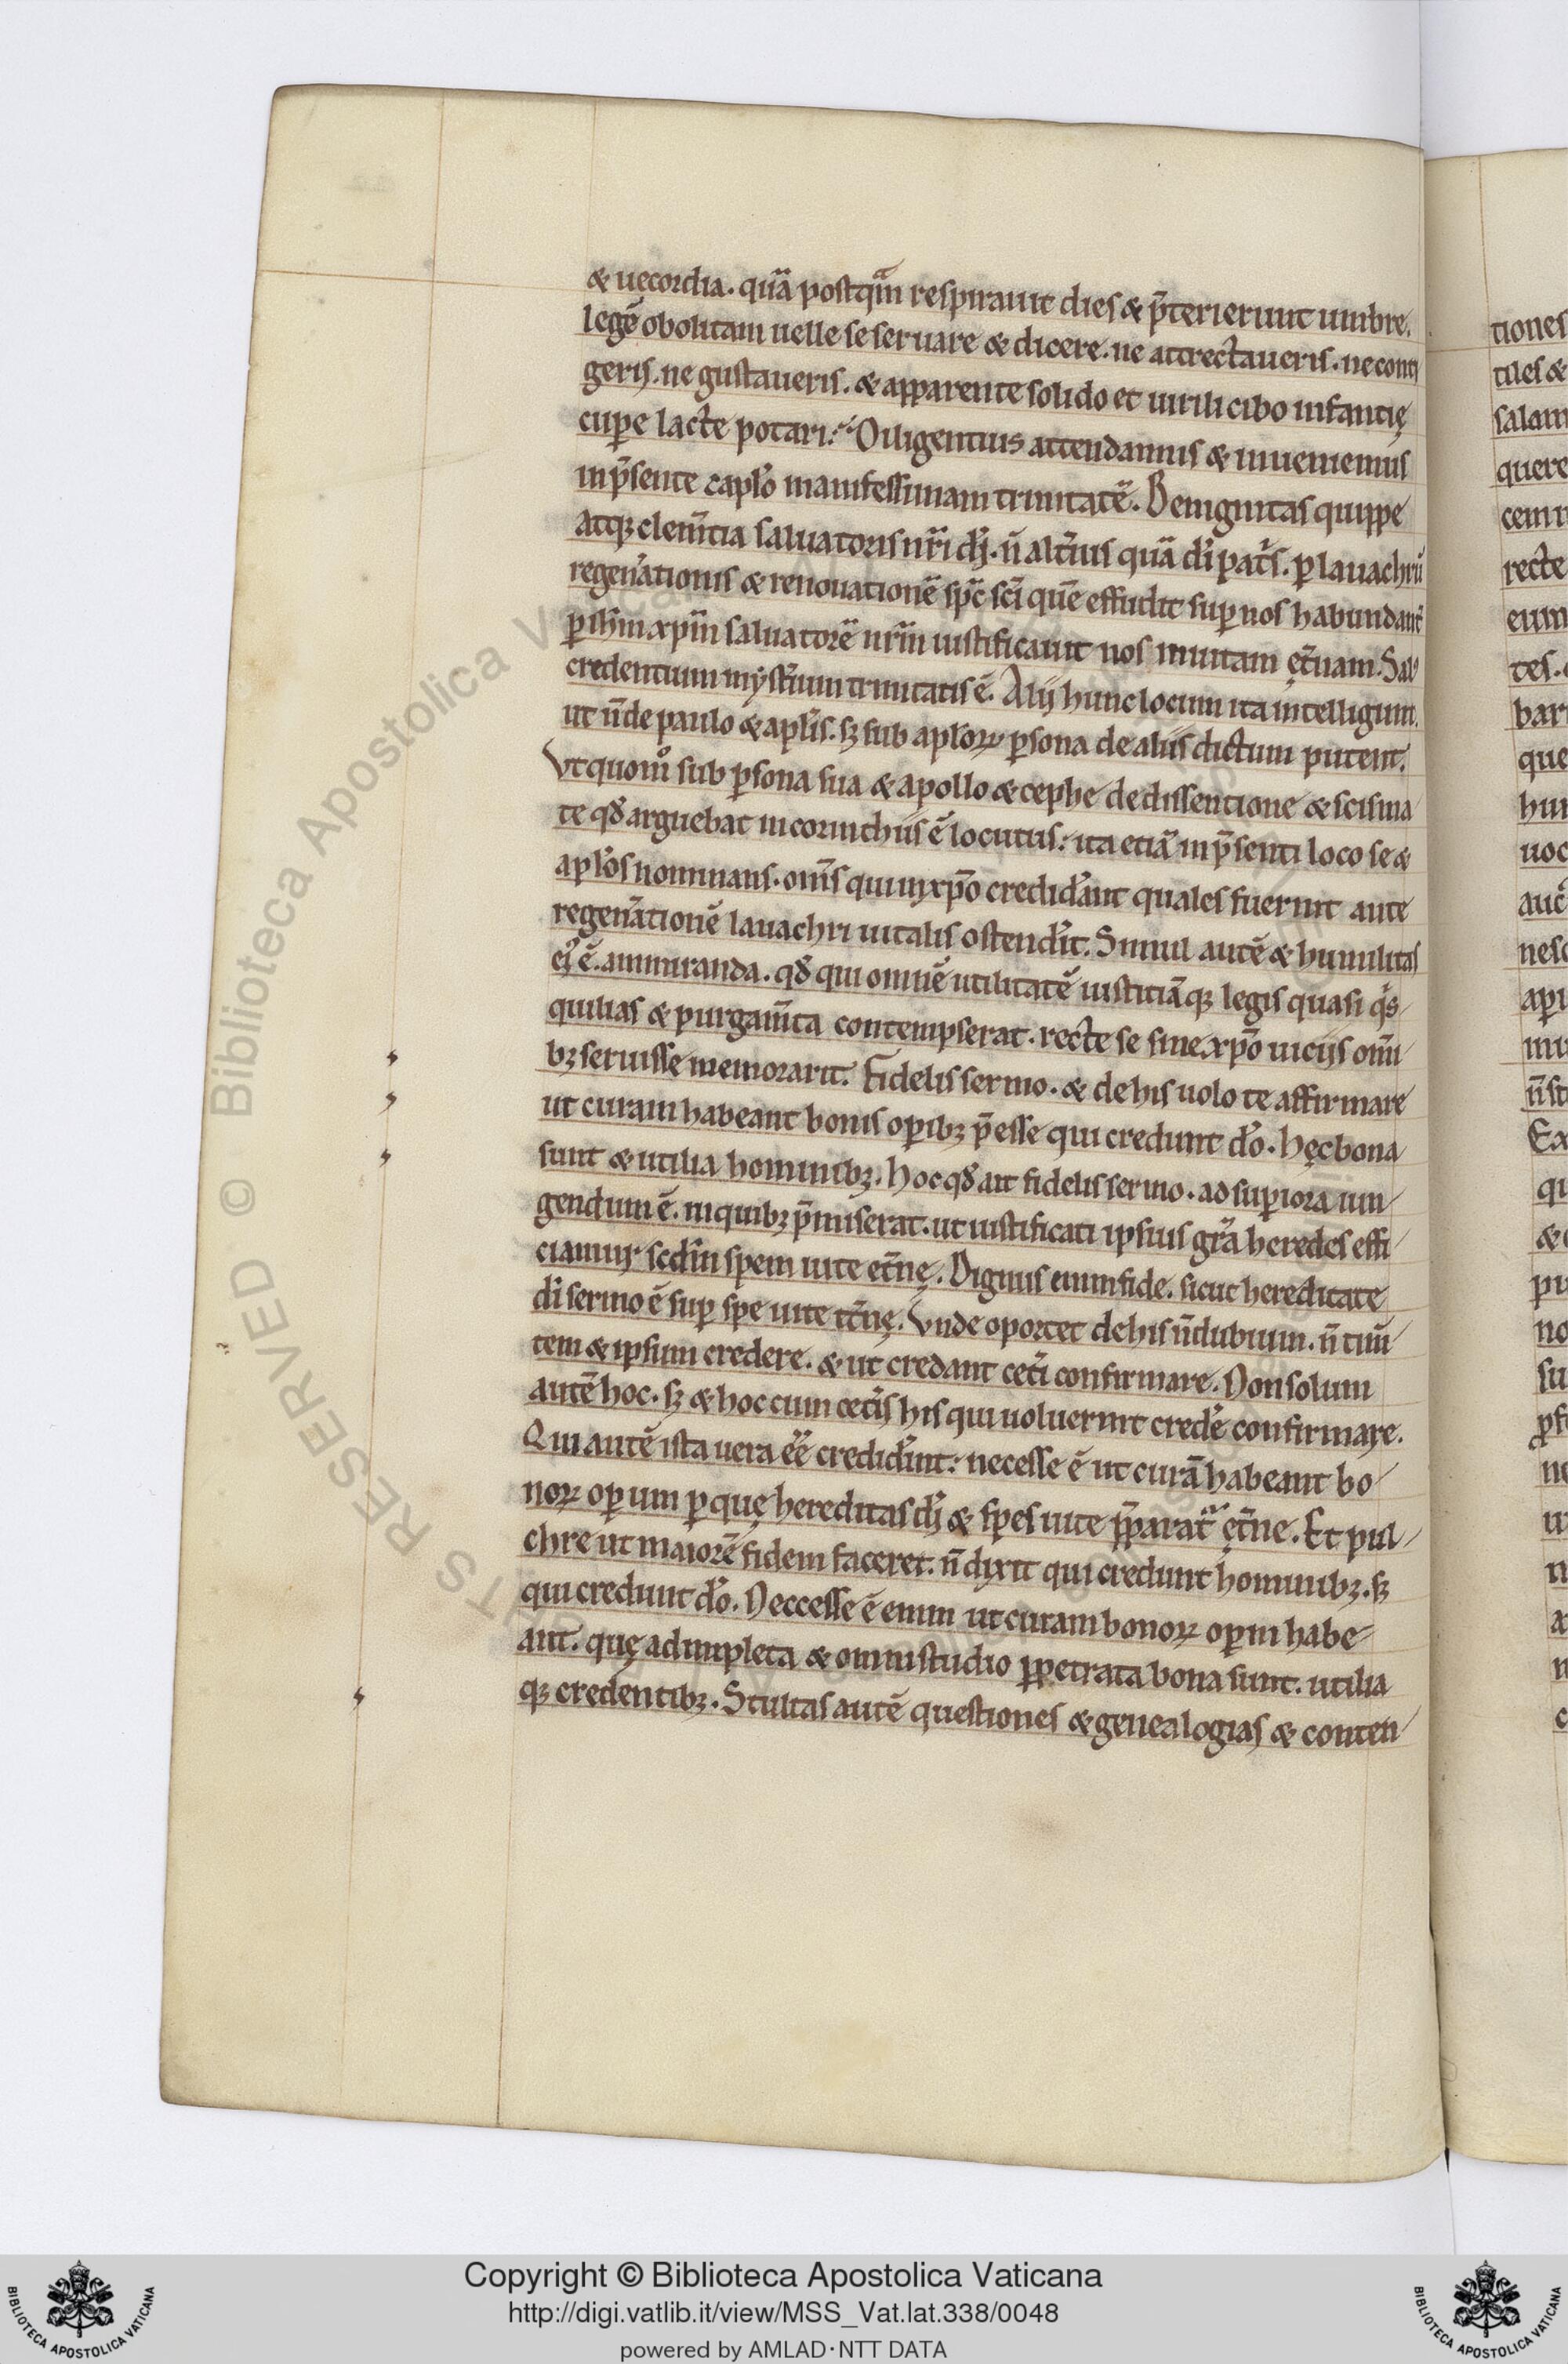 & uęcordia. quã postqᵃ̃m respirauit dies & p̃terierunt umbre.
legẽ obolitam uelle se seruare & dicere. ne attrectaueris. ne conti
geris. ne gustaueris. & apparente solido et uirili cibo infantię
cuꝑe lacte potari. Diligentius attendamus & inueniemus
in p̃sente capl̃o manifestissimam trinitatẽ. Benignitas quippe
atqꝫ clem̃tia saluatoris nr̃i dĩ. ñ altĩus quã dĩ patĩs. ꝑ lauachrũ
regen̓ationis & renouationẽ sp̃c sc̃i quẽ effudit suꝑ nos habundant̓
ꝑ ihm̃ xpm̃ saluatorẽ nrm̃ iustificauit nos in uitam ęt̃nam. Sal᷒
credentium myst̓ium trinitatis ẽ. Alij hunc locum ita intelligunt.
ut ñ de paulo & apl̃is. sꝫ sub aplõꝝ ꝑsona de aliis dictum putent.
Vt quom̊ sub ꝑsona sua & apollo & cephe de dissentione & scisma
te qđ arguebat in corinthiis ẽ locutus: ita etiã in p̃senti loco se &
apl̃os nominans. om̃s qui in xp̃o credid̓ant quales fuerint ante
regen̓ationẽ lauachri uitalis ostend̓it. Simul autẽ & humilitas
ei᷒ ẽ. ammiranda. qđ qui omnẽ utilitatẽ iustitiãqꝫ legis quasi q̓s
quilias & purgam̃ta contempserat. recte se sine xp̃o uicijs om̃i
bꝫ seruisse memorarit. Fidelis sermo. & de his uolo te affirmare
ut curam habeant bonis oꝑibꝫ p̃esse qui credunt dõ. hęc bona
sunt & utilia hominibꝫ. Hoc qđ ait fidelis sermo. ad suꝑiora iun
gendum ẽ. in quibꝫ p̃miserat. ut iustificati ipsius gr̃a heredes effi
ciamur scđm spem uite et̃nę. Dignus enim fide. sicut hereditate
dĩ sermo ẽ suꝑ spe uite et̃nę. Vnde oportet de his ñ dubium. ñ tim̃
tem & ipsum credere. & ut credant cet̓i confirmare. Non solum
autẽ hoc. sꝫ & hoc cum cet̓is his qui uoluerint cred̓e confirmare.
Qui autẽ ista uera eẽ credid̓int: necesse ẽ ut curã habeant bo
noꝝ oꝑum ꝑ quę hereditas dĩ & spes uite p̃parat᷑ ęt̃ne. Et pul
chre ut maiorẽ fidem faceret. ñ dixit qui credunt hominibꝫ. sꝫ
qui credunt dõ. Neccesse ẽ enim ut curam bonoꝝ oꝑm habe
ant. quę ad impleta & omni studio ꝑpetrata bona sunt. utilia
qꝫ credentibꝫ. Stultas autẽ questiones & genealogias & conten
tiones
tiles &
salam
quere
cem
recte
eum
tes.
bar
que
hun
uoc
auc̃
nesc
aꝑi
ñ st
Ex
qu
&
pu
no
su
ne
Biblioteca Apostolica Vaticana
RESERVED © Biblioteca Apostolica
Copyright © Biblioteca Apostolica Vaticana
http://digi.vatlib.it/view/MSS_Vat.lat.338/0048
powered by AMLAD·NTT DATA
BIBLIOTECA APOSTOLICA VATICANA
BIBLIOTECA APOSTOLICA VATICANA